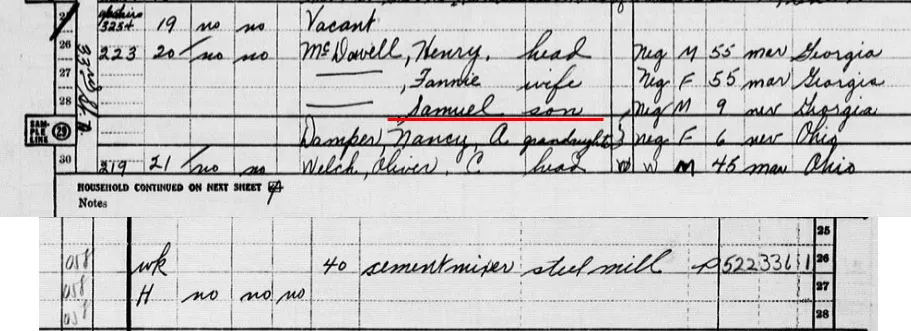 upstairs
3254 19 no no Vacant
26 223 20 no no McDowell, Henry, head Neg M 55 mar Georgia
27 — , Fannie wife Neg F 55 mar Georgia
28 — Samuel son Neg M 9 nev Georgia
33rd St. N
SAMPLE LINE 29 Damper, Nancy, A grandaught Neg F 6 nev Ohio
30 219 21 no no Welch, Oliver, C. head W M 45 mar Ohio
HOUSEHOLD CONTINUED ON NEXT SHEET
Notes
25
058 wk 40 sement mixer steel mill P 522 336 1 26
058 H no no no 27
28